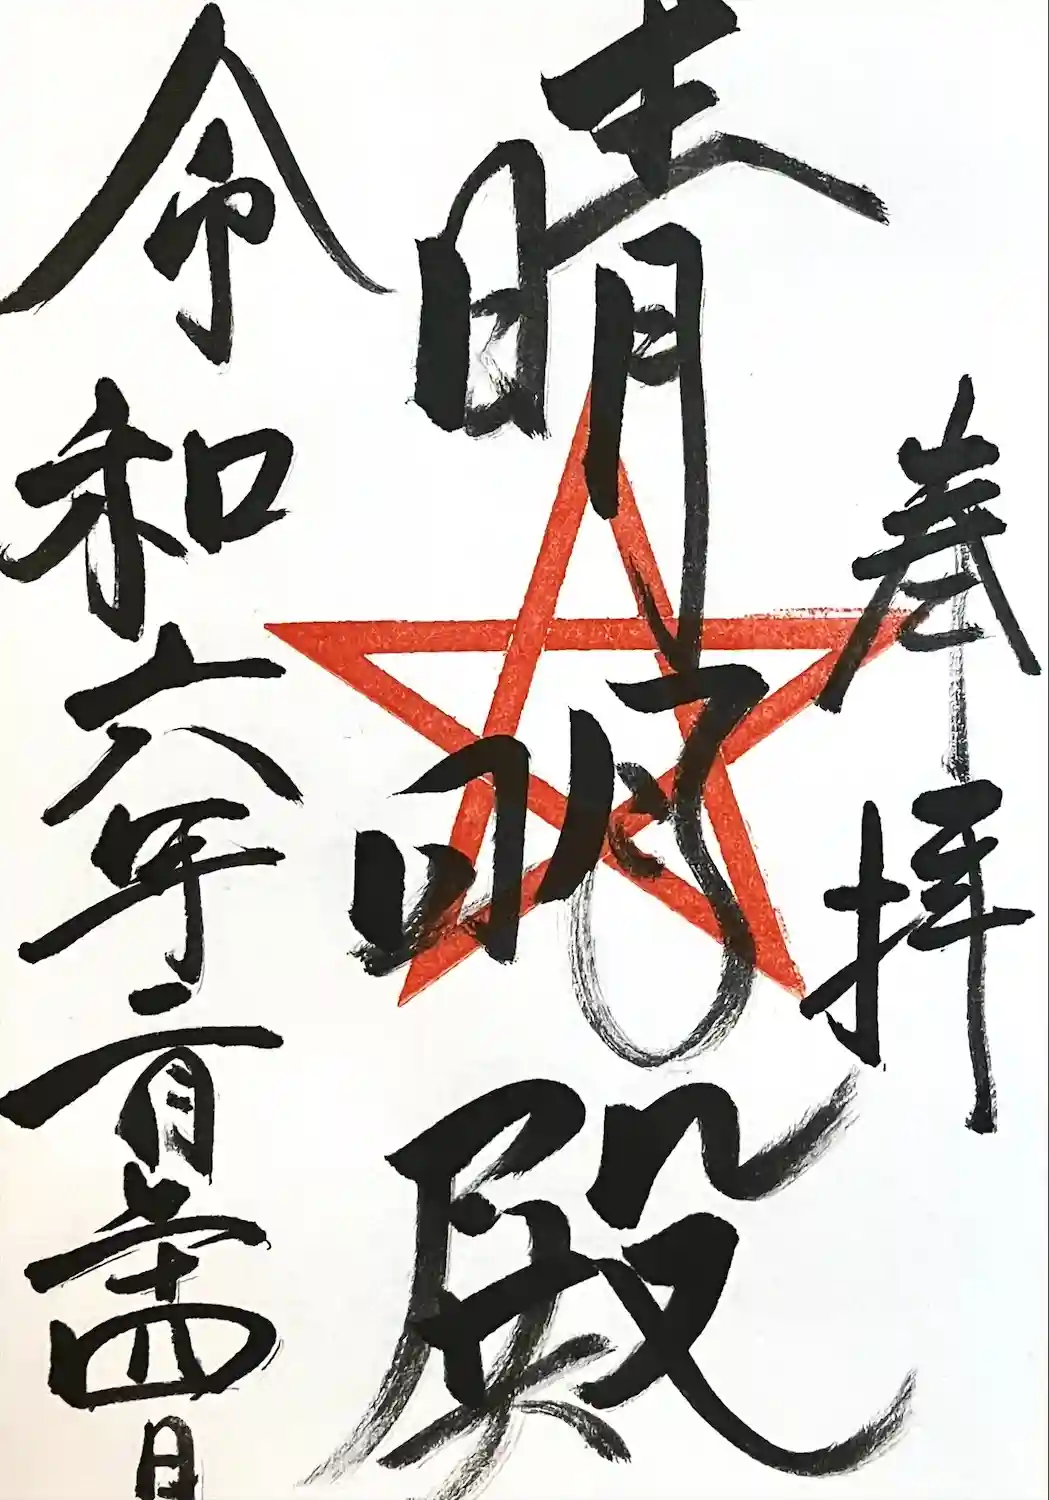 奉拝
晴明殿
令和六年二月二十四日